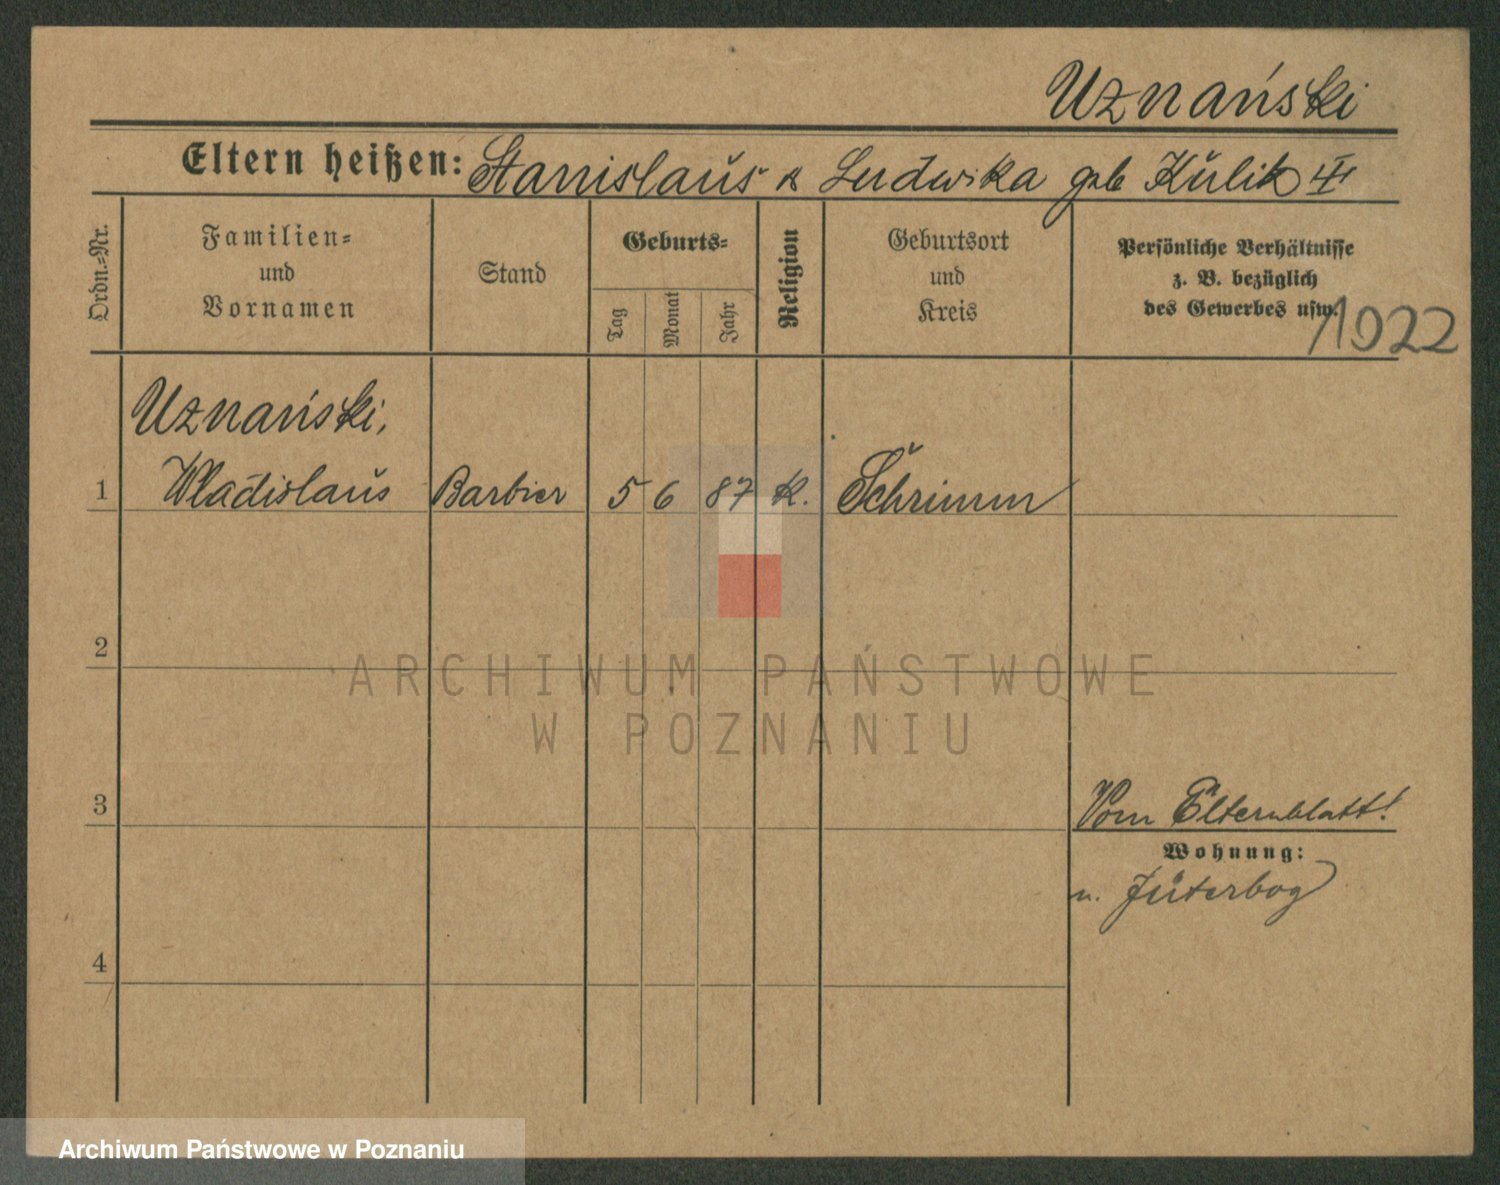 Uznański
Eltern heißen: Stanislaus & Ludwika geb Kulik
Ordn.-Nr.
Familien-
und
Vornamen
Stand
Geburts-
Tag
Monat
Jahr
Religion
Geburtsort
und
Kreis
Persönliche Verhältnisse
z. B. bezüglich
des Gewerbes usw.
1922
Uznański,
1 Wladislaus Barbier 5 6 87 K. Schrimm
2
3
Vom Elternblatt!
Wohnung:
n. Jüterbog
4
ARCHIWUM PAŃSTWOWE
W POZNANIU
Archiwum Państwowe w Poznaniu